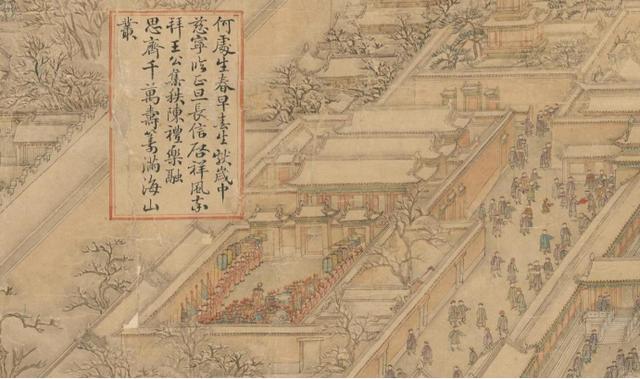 何處生春早春生獻歲中
慈寧临正旦長信啓祥風
祥王公集秩陳禮樂融
思齊千萬壽籌滿海山
叢